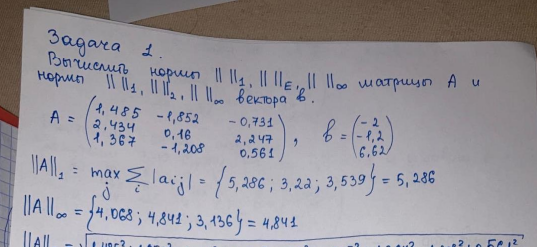 Задача 1.
Вычислить нормы || ||₁, || ||_E, || ||_∞ матрицы A и
нормы || ||₁, || ||₂, || ||_∞ вектора b.
A = (1,485 -1,852 -0,731
2,434 0,16 2,247
1,367 -1,208 0,561), b = (-2
-1,2
6,62)
||A||₁ = max_j Σ_i |a_ij| = {5,286; 3,22; 3,539} = 5,286
||A||_∞ = {4,068; 4,841; 3,136} = 4,841